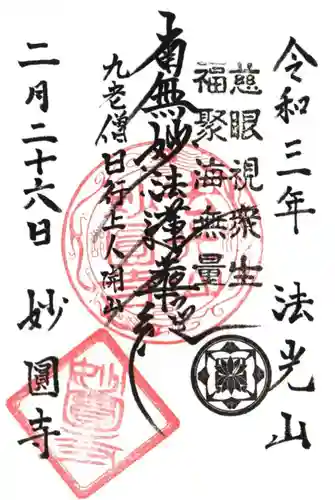 令和三年 法光山
慈眼視衆生
福聚海無量
南無妙法蓮華経
九老僧日行上人開山
二月二十六日 妙圓寺
妙圓寺